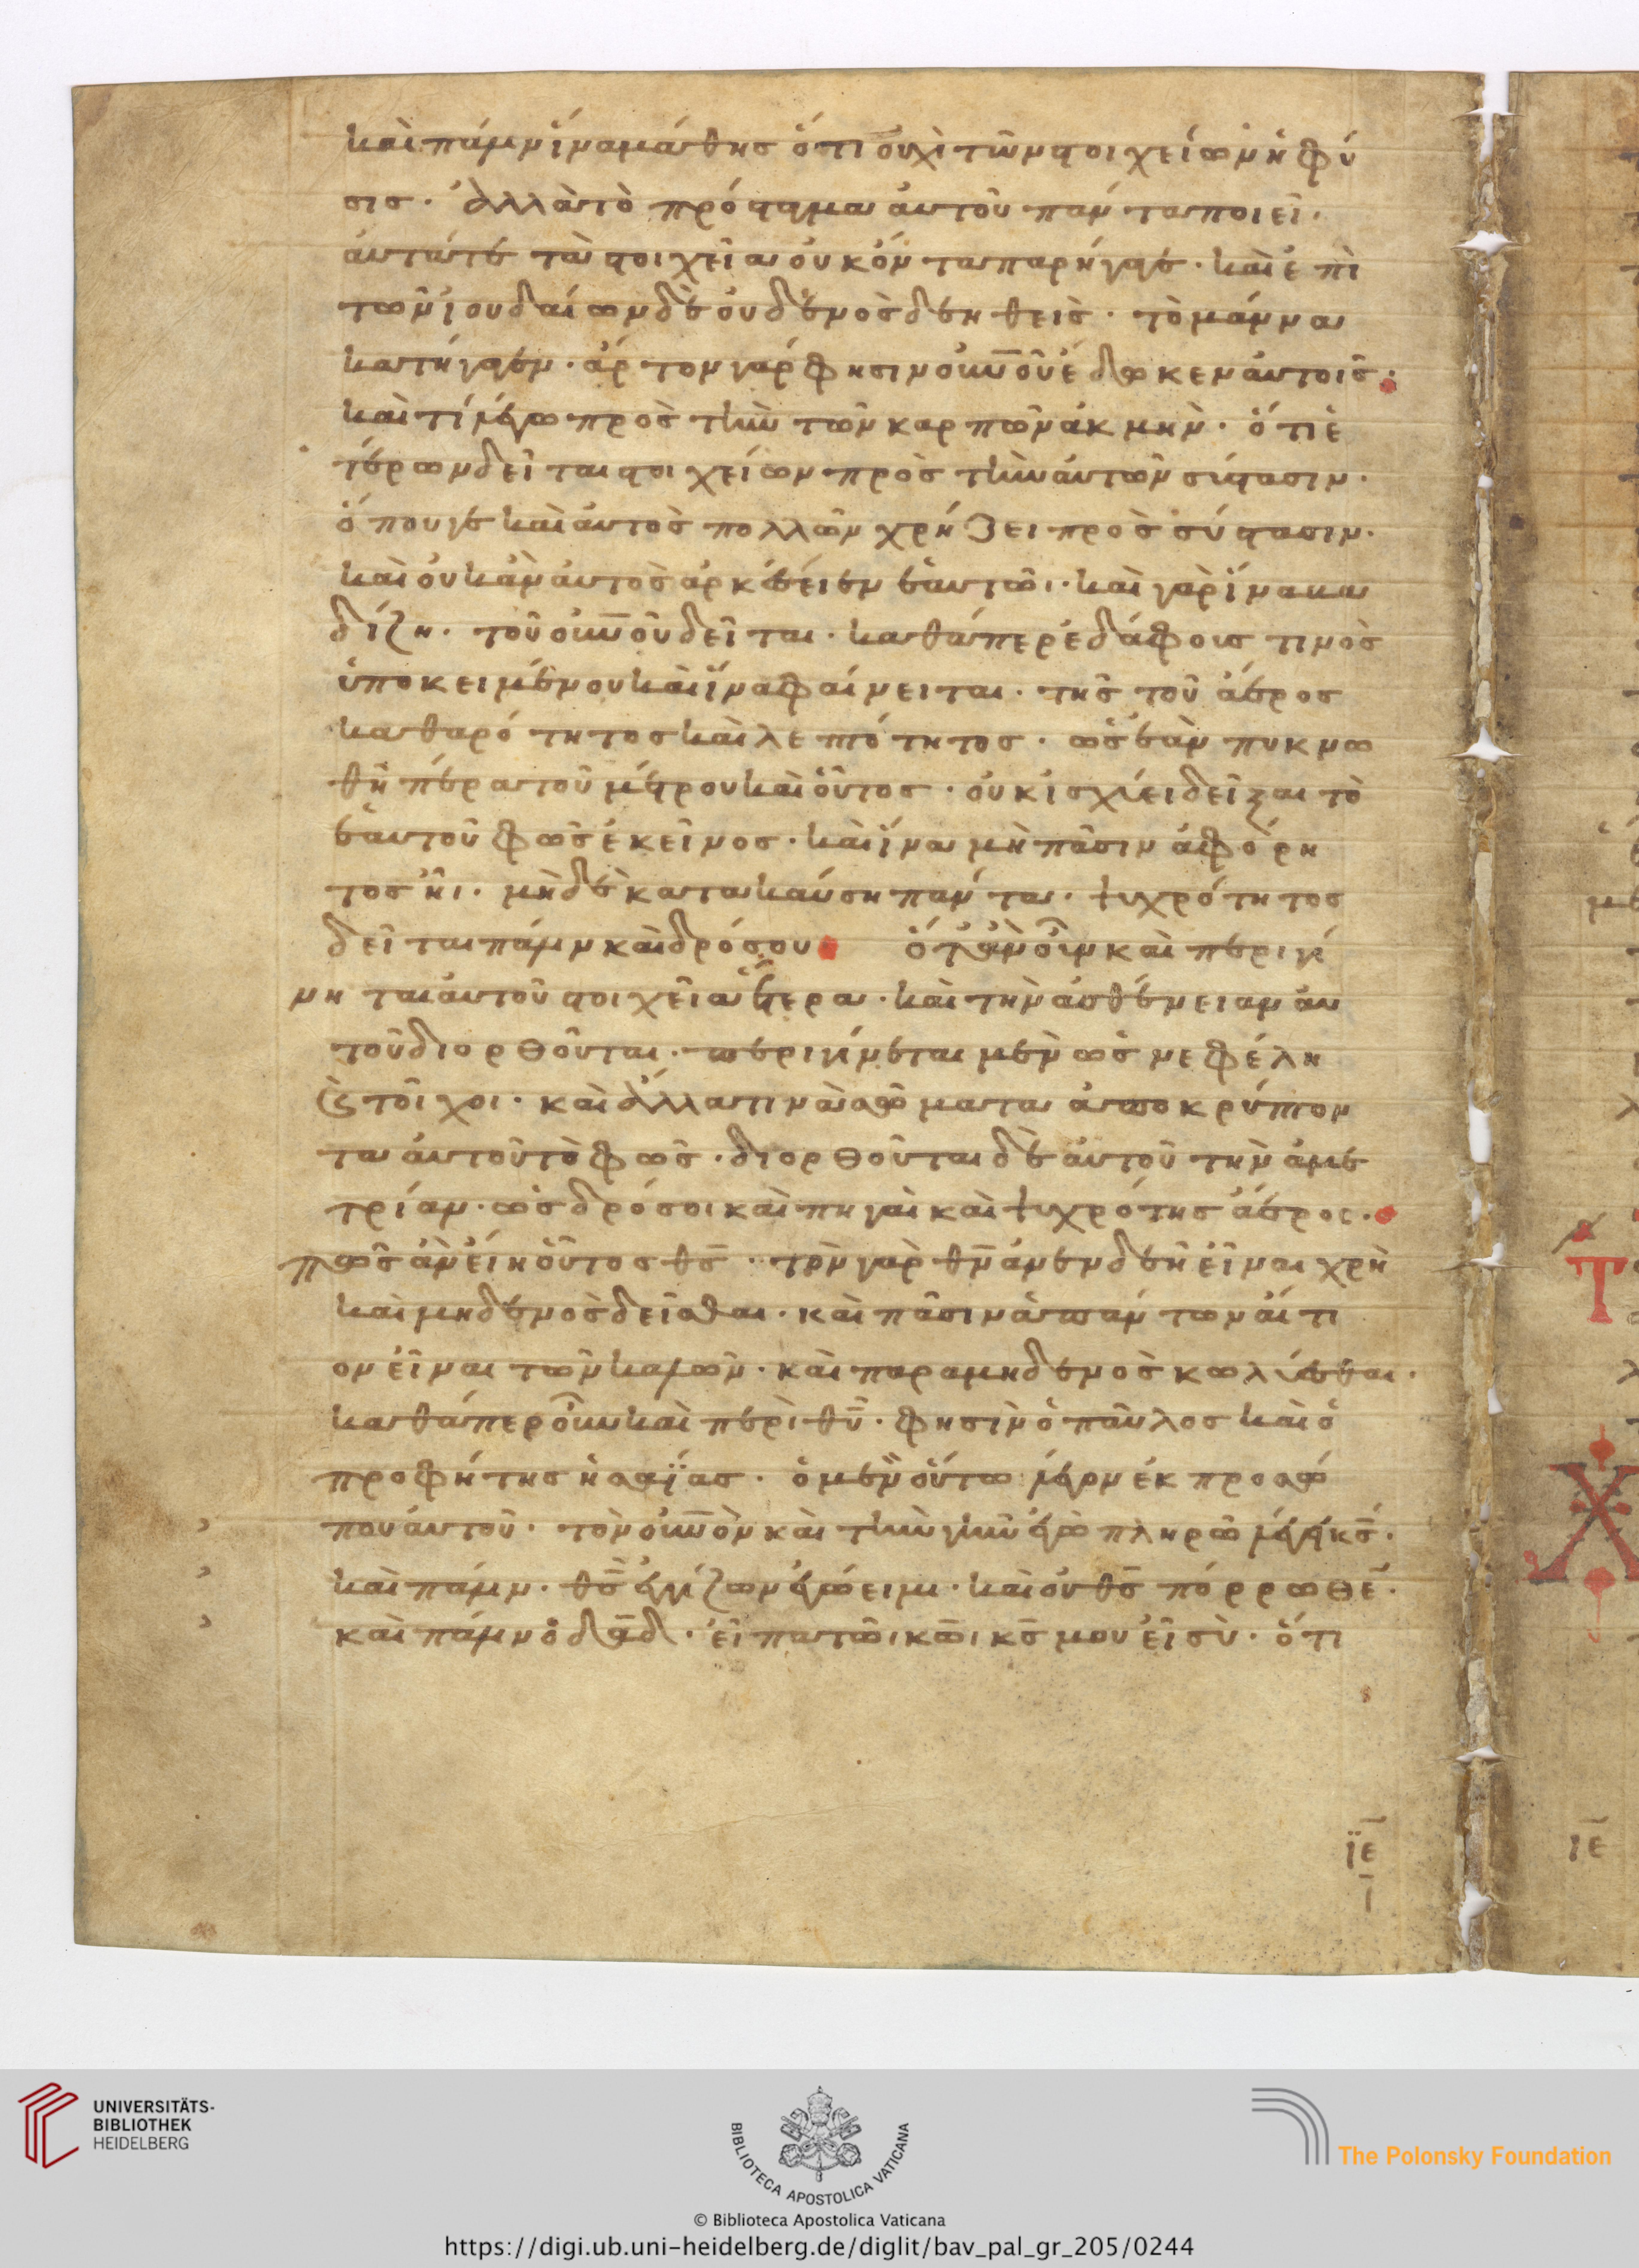 καὶ πάλιν ἵνα μάθης ὅτι οὐχὶ τῶν στοιχείων ἡ φύ
σις· ἀλλὰ τὸ πρόσταγμα αὐτοῦ πάντα ποιεῖ·
αὐτά τε τὰ στοιχεῖα οὐκ ὄντα παρήγαγε· καὶ ἐπὶ
τῶν ἰουδαίων δὲ οὐδενὸς δεηθεὶς· τὸ μάννα
κατήγαγεν· ἄρτον γάρ φησιν οὐνοῦ ἔδωκεν αὐτοῖς·
καὶ τί λέγω πρὸς τὴν τῶν καρπῶν ἀκμὴν· ὅτι ἑ
τέρων δεῖται στοιχείων πρὸς τὴν αὐτῶν σύστασιν·
ὅπου γε καὶ αὐτὸς πολλῶν χρήζει πρὸς σύστασιν·
καὶ οὐκ ἂν αὐτὸς ἀρκέσειεν ἑαυτῶι· καὶ γὰρ ἵνα βα
δίζη· τοῦ οὐνοῦ δεῖται· καθάπερ ἐδάφους τινὸς
ὑποκειμένου καὶ ἵνα φαίνειται· τῆς τοῦ ἀέρος
καθαρότητος καὶ λεπτότητος· ὡς ἐὰν πυκνω
θῆ πέρα τοῦ μέτρου καὶ οὗτος· οὐκ ἰσχύει δεῖξαι τὸ
ἑαυτοῦ φῶς ἐκεῖνος· καὶ ἵνα μὴ πᾶσιν ἀφόρη
τος ἦι· μηδὲ κατακαύση πάντα· ψυχρότητος
δεῖται πάλιν καὶ δρόσου· ὅταν οὖν καὶ περιγί
νηται αὐτοῦ στοιχεῖα ἕτερα· καὶ τὴν ἀσθένειαν αὐ
τοῦ διορθοῦται· περιγίνεται μὲν ὡς νεφέλη
καὶ τοῖχοι· καὶ ἄλλα τινὰ σώματα ἀποκρύπτον
τα αὐτοῦ τὸ φῶς· διορθοῦται δὲ αὐτοῦ τὴν ἀμε
τρίαν· ὡς δρόσοι καὶ πηγαὶ καὶ ψυχρότης ἀέρος·
πῶς ἂν εἴη οὗτος θς· τὸν γὰρ θν ἀνενδεῆ εἶναι χρὴ
καὶ μηδενὸς δεῖσθαι· καὶ πᾶσιν ἁπάντων αἴτι
ον εἶναι τῶν καλῶν· καὶ παρα μηδενὸς κωλύεσθαι·
καθάπερ οὖν καὶ περὶ θυ· φησὶν ὁ παῦλος καὶ ὁ
προφήτης ἠσαΐας· ὁ μὲν οὕτω λέγων ἐκ προσώ
που αὐτοῦ· τὸν οὐνὸν καὶ τὴν γῆν ἐγὼ πληρῶ λέγει κς·
καὶ πάλιν· θς ἐγγίζων ἐγώ ειμι· καὶ οὐ θς πόρρωθε·
καὶ πάλιν ὁ δαδ· εἶπα τῶι κωι κς μου εἶ σὺ· ὅτι
ϊε
ιε
UNIVERSITÄTS-
BIBLIOTHEK
HEIDELBERG
BIBLIOTECA APOSTOLICA VATICANA
The Polonsky Foundation
© Biblioteca Apostolica Vaticana
https://digi.ub.uni-heidelberg.de/diglit/bav_pal_gr_205/0244